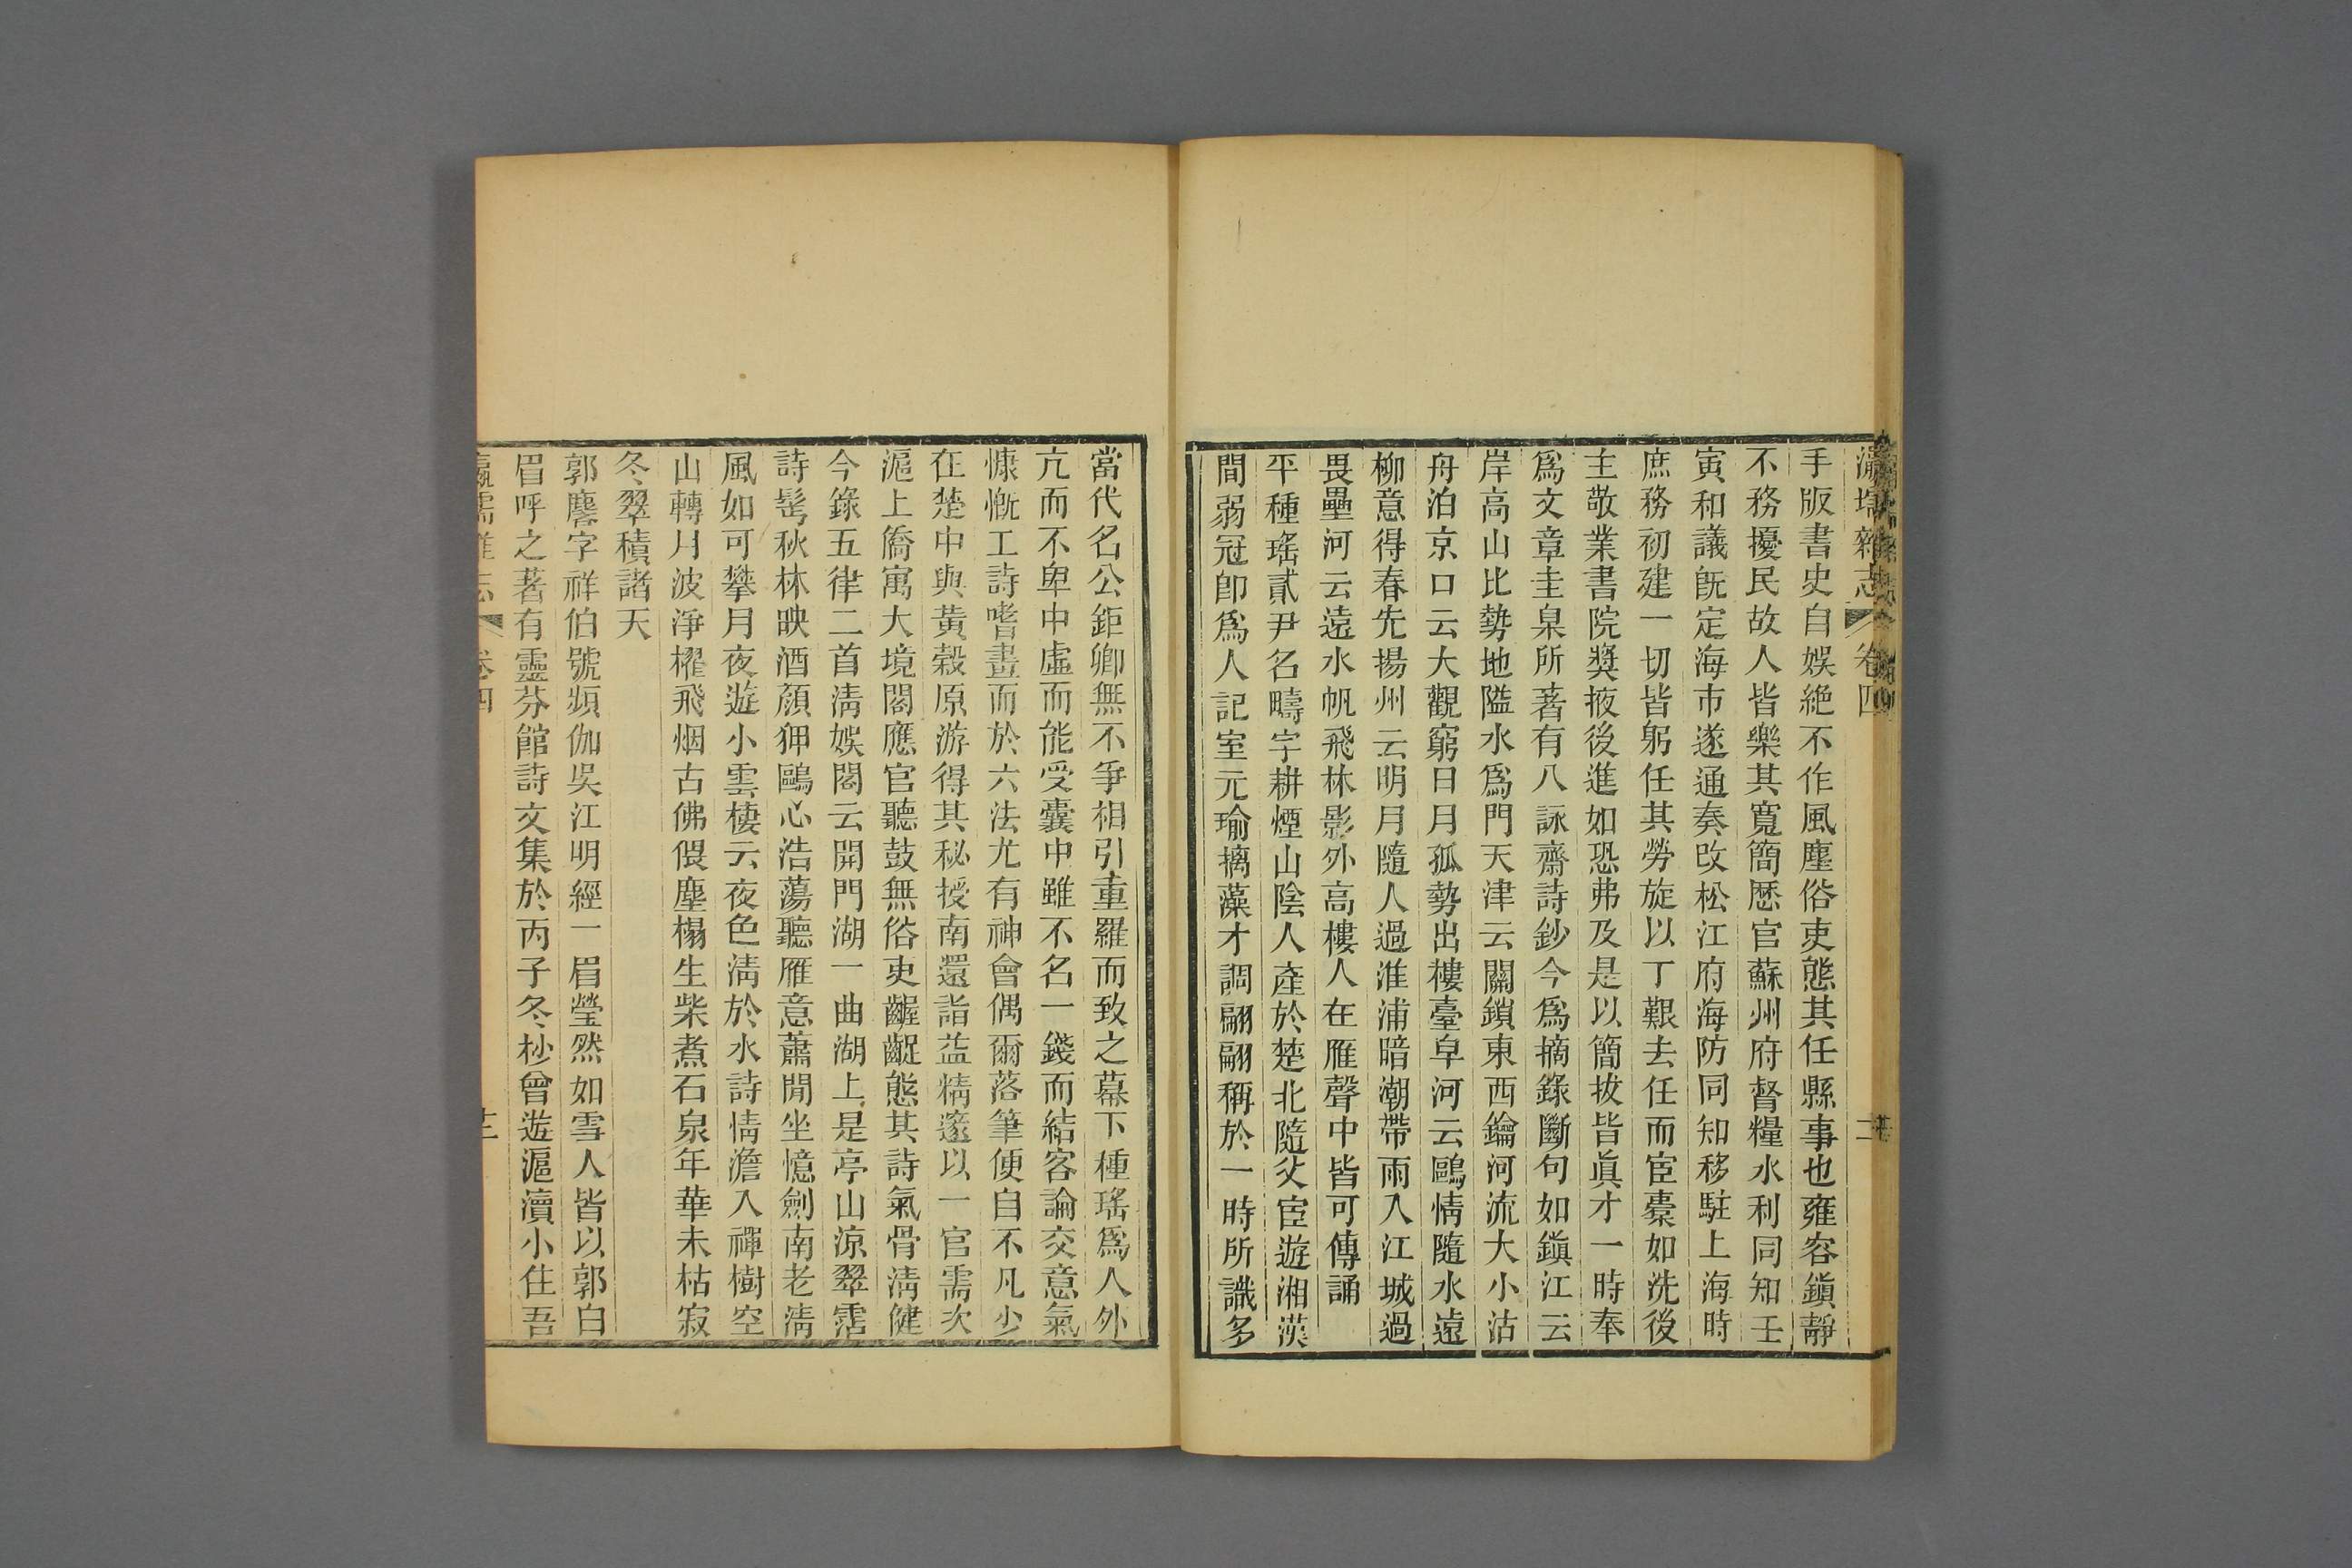 瀛壖雜志 卷四 二
手版書史自娛絶不作風塵俗吏態其任縣事也雍容鎭靜
不務擾民故人皆樂其寬簡歷官蘇州府督糧水利同知壬
寅和議旣定海市遂通奏改松江府海防同知移駐上海時
庶務初建一切皆躬任其勞旋以丁艱去任而宦橐如洗後
主敬業書院奬掖後進如恐弗及是以簡拔皆眞才一時奉
爲文章圭臬所著有八詠齋詩鈔今爲摘錄斷句如鎭江云
岸高山比勢地隘水爲門天津云關鎖東西鑰河流大小沽
舟泊京口云大觀窮日月孤勢出樓臺阜河云鷗情隨水遠
柳意得春先揚州云明月隨人過淮浦暗潮帶雨入江城過
畏壘河云遠水帆飛林影外高樓人在雁聲中皆可傳誦
平種瑤貳尹名疇字耕煙山陰人產於楚北隨父宦遊湘漢
間弱冠卽爲人記室元瑜摛藻才調翩翩稱於一時所識多
當代名公鉅卿無不爭相引重羅而致之幕下種瑤爲人外
亢而不卑中虛而能受囊中雖不名一錢而結客論交意氣
慷慨工詩嗜畫而於六法尤有神會偶爾落筆便自不凡少
在楚中與黄榖原游得其秘授南還詣益精邃以一官需次
滬上僑寓大境閣應官聽鼓無俗吏齷齪態其詩氣骨淸健
今錄五律二首淸娛閣云開門湖一曲湖上是亭山涼翠霑
詩髩秋林映酒顏狎鷗心浩蕩聽雁意蕭閒坐憶劍南老淸
風如可攀月夜遊小雲棲云夜色淸於水詩情澹入禪樹空
山轉月波淨櫂飛烟古佛偎塵榻生柴煮石泉年華未枯寂
冬翠積諸天
郭麐字祥伯號頻伽吳江明經一眉瑩然如雪人皆以郭白
眉呼之著有靈芬館詩文集於丙子冬杪曾遊滬瀆小住吾
瀛壖雜志 卷四 十二